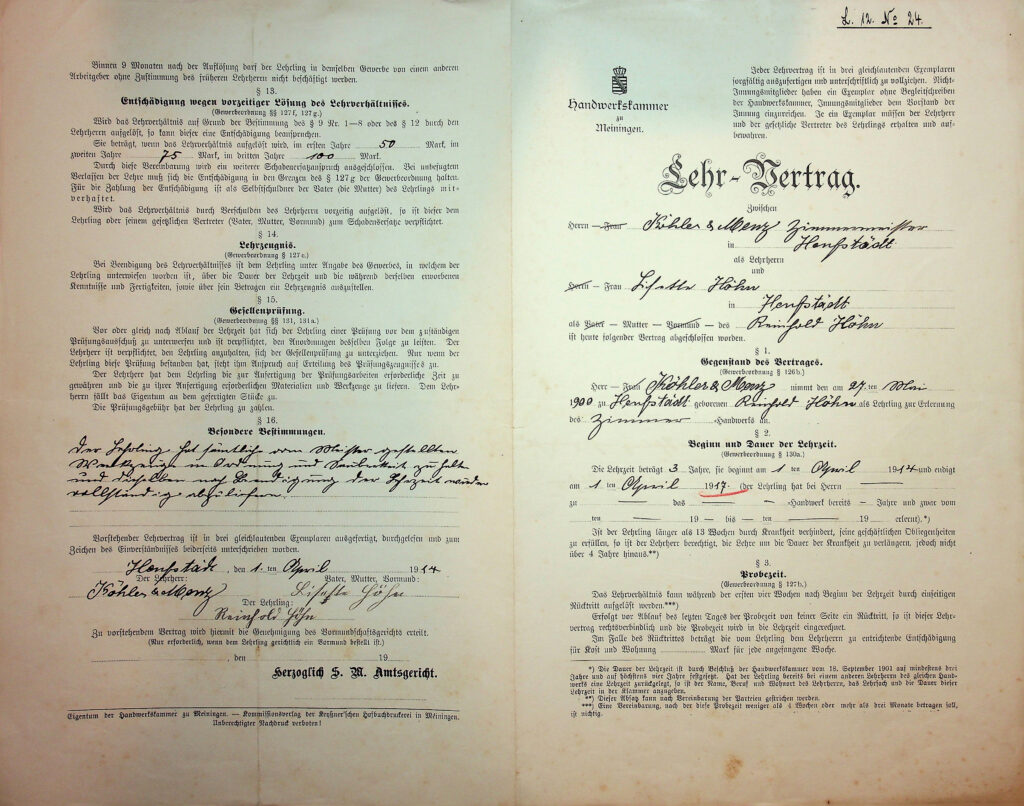 Binnen 9 Monaten nach der Auflösung darf der Lehrling in demselben Gewerbe von einem anderen
Arbeitgeber ohne Zustimmung des früheren Lehrherren nicht beschäftigt werden.
§ 13.
Entschädigung wegen vorzeitiger Lösung des Lehrverhältnisses.
(Gewerbeordnung §§ 127f, 127g.)
Wird das Lehrverhältnis auf Grund der Bestimmung des § 9 Nr. 1—8 oder des § 12 durch den
Lehrherren aufgelöst, so kann dieser eine Entschädigung beanspruchen.
Sie beträgt, wenn das Lehrverhältnis aufgelöst wird, im ersten Jahre 50 Mark, im
zweiten Jahre 75 Mark, im dritten Jahre 100 Mark.
Durch diese Vereinbarung wird ein weiterer Schadenersatzanspruch ausgeschlossen. Bei unbefugtem
Verlassen der Lehre muß sich die Entschädigung in den Grenzen des § 127g der Gewerbeordnung halten.
Für die Zahlung der Entschädigung ist als Selbstschuldner der Vater (die Mutter) des Lehrlings mit-
verhaftet.
Wird das Lehrverhältnis durch Verschulden des Lehrherren vorzeitig aufgelöst, so ist dieser dem
Lehrling oder seinem gesetzlichen Vertreter (Vater, Mutter, Vormund) zum Schadensersatz verpflichtet.
§ 14.
Lehrzeugnis.
(Gewerbeordnung § 127c.)
Bei Beendigung des Lehrverhältnisses ist dem Lehrling unter Angabe des Gewerbes, in welchem der
Lehrling unterwiesen worden ist, über die Dauer der Lehrzeit und die während derselben erworbenen
Kenntnisse und Fertigkeiten, sowie über sein Betragen ein Lehrzeugnis auszustellen.
§ 15.
Gesellenprüfung.
(Gewerbeordnung §§ 131, 131a.)
Vor oder gleich nach Ablauf der Lehrzeit hat sich der Lehrling einer Prüfung vor dem zuständigen
Prüfungsausschuß zu unterwerfen und ist verpflichtet, den Anordnungen desselben Folge zu leisten. Der
Lehrherr ist verpflichtet, den Lehrling anzuhalten, sich der Gesellenprüfung zu unterziehen. Nur wenn der
Lehrling diese Prüfung bestanden hat, steht ihm Anspruch auf Erteilung des Prüfungszeugnisses zu.
Der Lehrherr hat dem Lehrling die zur Anfertigung der Prüfungsarbeiten erforderliche Zeit zu
gewähren und die zu ihrer Anfertigung erforderlichen Materialien und Werkzeuge zu liefern. Dem Lehr-
herrn fällt das Eigentum an dem gefertigten Stücke zu.
Die Prüfungsgebühr hat der Lehrling zu zahlen.
§ 16.
Besondere Bestimmungen.
Der Lehrling hat sämtliche vom Meister gestellten
Werkzeuge in Ordnung und Sauberkeit zu halten
und dieselben nach Beendigung der Lehrzeit wieder
vollständig abzuliefern.
Vorstehender Lehrvertrag ist in drei gleichlautenden Exemplaren ausgefertigt, durchgelesen und zum
Zeichen des Einverständnisses beiderseits unterschrieben worden.
Henfstädt, den 1.ten April 1914
Der Lehrherr: Vater, Mutter, Vormund:
Köhler & Menz Lisette Höhn
Der Lehrling:
Reinhold Höhn
Zu vorstehendem Vertrag wird hiermit die Genehmigung des Vormundschaftsgerichts erteilt.
(Nur erforderlich, wenn dem Lehrling gerichtlich ein Vormund bestellt ist.)
, den 19
Herzoglich S. M. Amtsgericht.
Eigentum der Handwerkskammer zu Meiningen. — Kommissionsverlag der Keyßner'schen Hofbuchdruckerei in Meiningen.
Unberechtigter Nachdruck verboten!
L. 12. No 24.
Handwerkskammer
zu
Meiningen.
Jeder Lehrvertrag ist in drei gleichlautenden Exemplaren
sorgfältig auszufertigen und unterschriftlich zu vollziehen. Nicht-
Innungsmitglieder haben ein Exemplar ohne Begleitschreiben
der Handwerkskammer, Innungsmitglieder dem Vorstand der
Innung einzureichen. Je ein Exemplar müssen der Lehrherr
und der gesetzliche Vertreter des Lehrlings erhalten und auf-
bewahren.
Lehr-Vertrag.
Zwischen
Herrn — Frau Köhler & Menz Zimmermeister
in Henfstädt
als Lehrherrn
und
Herrn — Frau Lisette Höhn
in Henfstädt
als Vater — Mutter — Vormund — des Reinhold Höhn
ist heute folgender Vertrag abgeschlossen worden.
§ 1.
Gegenstand des Vertrages.
(Gewerbeordnung § 126b.)
Herr — Frau Köhler & Menz nimmt den am 27.ten Mai
1900 zu Henfstädt geborenen Reinhold Höhn als Lehrling zur Erlernung
des Zimmer -Handwerks an.
§ 2.
Beginn und Dauer der Lehrzeit.
(Gewerbeordnung § 130a.)
Die Lehrzeit beträgt 3 Jahre, sie beginnt am 1 ten April 1914 und endigt
am 1 ten April 1917. (der Lehrling hat bei Herrn —
zu — das — -Handwerk bereits — Jahre und zwar vom
ten — 19 — bis — ten — 19 erlernt).*)
Ist der Lehrling länger als 13 Wochen durch Krankheit verhindert, seine geschäftlichen Obliegenheiten
zu erfüllen, so ist der Lehrherr berechtigt, die Lehre um die Dauer der Krankheit zu verlängern, jedoch nicht
über 4 Jahre hinaus.**)
§ 3.
Probezeit.
(Gewerbeordnung § 127b.)
Das Lehrverhältnis kann während der ersten vier Wochen nach Beginn der Lehrzeit durch einseitigen
Rücktritt aufgelöst werden.***)
Erfolgt vor Ablauf des letzten Tages der Probezeit von keiner Seite ein Rücktritt, so ist dieser Lehr-
vertrag rechtsverbindlich und die Probezeit wird in die Lehrzeit eingerechnet.
Im Falle des Rücktrittes beträgt die vom Lehrling dem Lehrherrn zu entrichtende Entschädigung
für Kost und Wohnung — Mark für jede angefangene Woche.
*) Die Dauer der Lehrzeit ist durch Beschluß der Handwerkskammer vom 18. September 1901 auf mindestens drei
Jahre und auf höchstens vier Jahre festgesetzt. Hat der Lehrling bereits bei einem anderen Lehrherrn des gleichen Hand-
werks eine Lehrzeit zurückgelegt, so ist der Name, Beruf und Wohnort des Lehrherrn, das Lehrfach und die Dauer dieser
Lehrzeit in der Klammer anzugeben.
**) Dieser Absatz kann nach Vereinbarung der Parteien gestrichen werden.
***) Eine Vereinbarung, nach der diese Probezeit weniger als 4 Wochen oder mehr als drei Monate betragen soll,
ist nichtig.